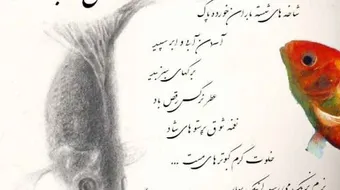 شاخه های شسته باران خورده پاک
آسمان آبی و ابر سپید
برگهای سبز بید
عطر نرگس رقص باد
نغمه شوق پرستوهای شاد
خلوت گرم کبوترهای مست ...
نرم نرمک می رسد اینک بهار